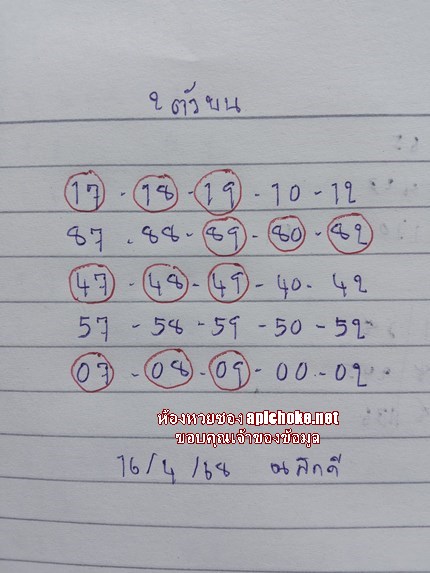 2 ตัวบน
17 - 18 - 19 - 10 - 12
87 - 88 - 89 - 80 - 82
47 - 48 - 49 - 40 - 42
57 - 58 - 59 - 50 - 52
07 - 08 - 09 - 00 - 02
ห้องหวยซอง apichoke.net
ขอบคุณเจ้าของข้อมูล
16/4/68